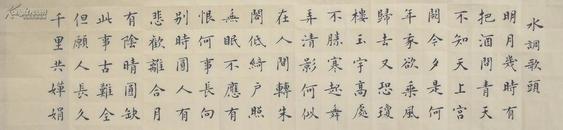 水調歌頭
明月幾時有
把酒問青天
不知天上宮
闕今夕是何
年我欲乘風
歸去又恐瓊
樓玉宇高處
不勝寒起舞
弄清影何似
在人間轉朱
閣低綺戶照
無眠不應有
恨何事長向
別時圓人有
悲歡離合月
有陰晴圓缺
此事古難全
但願人長久
千里共嬋娟